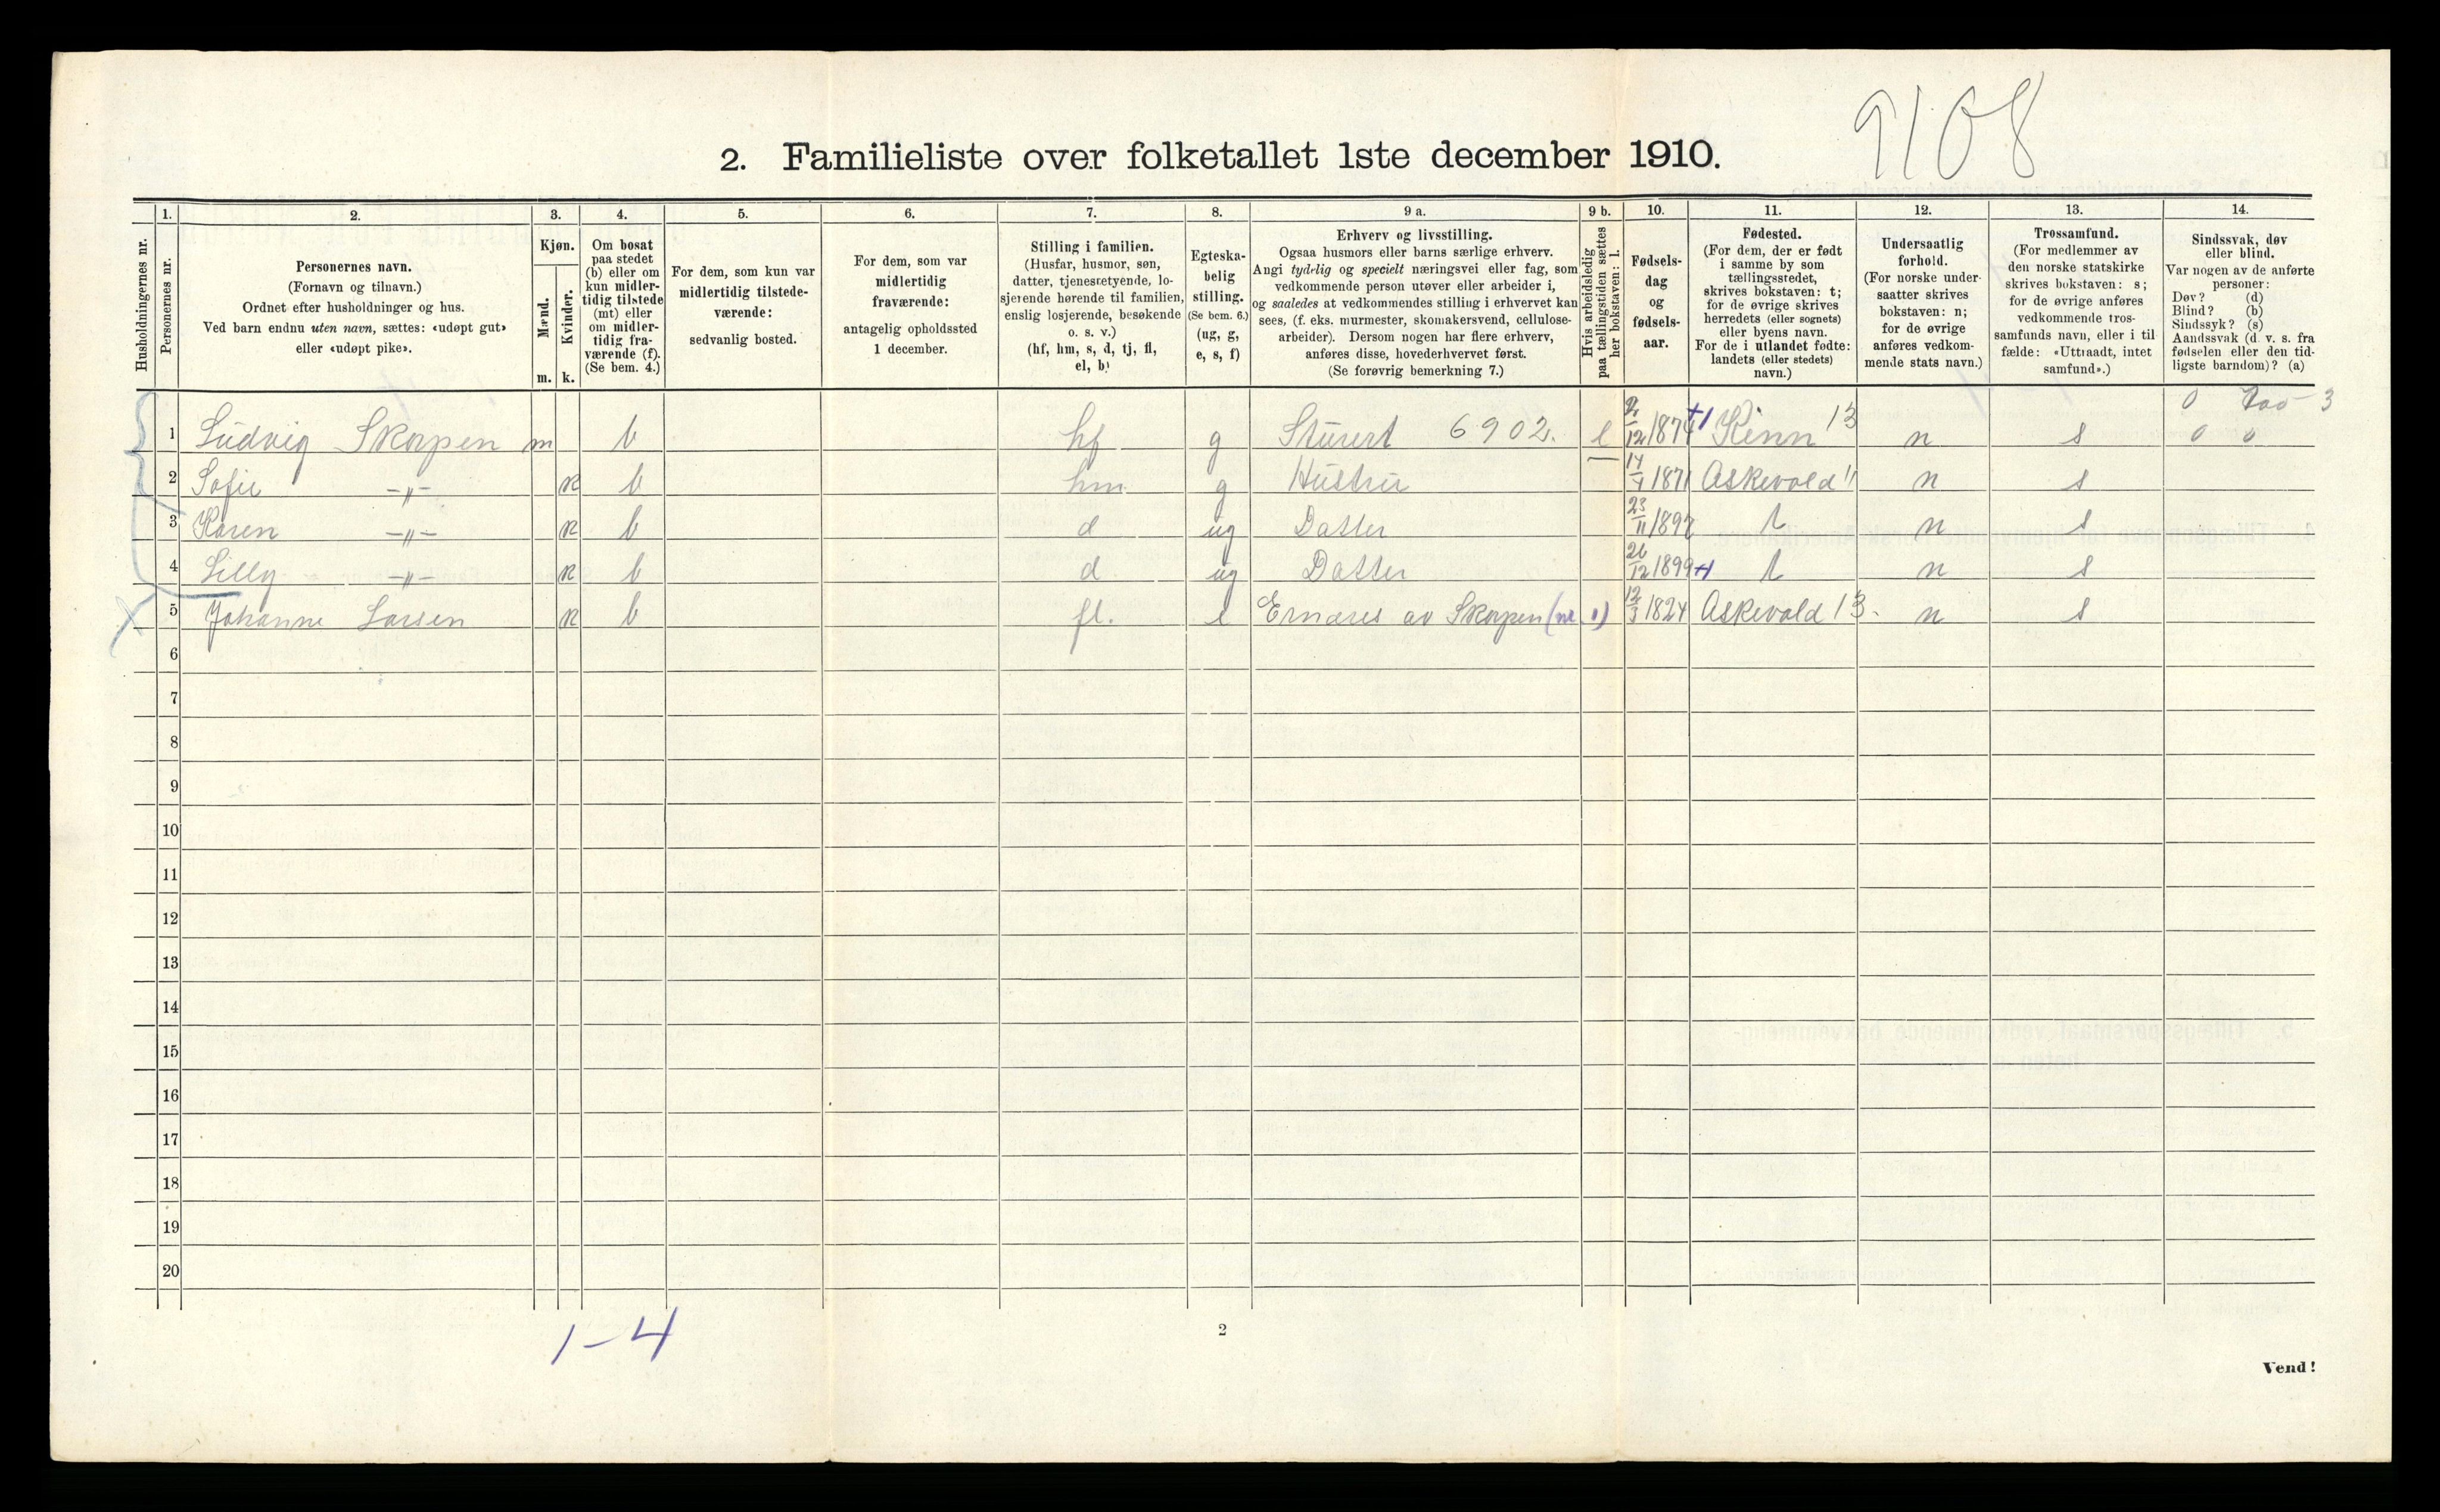 9108
2. Familieliste over folketallet 1ste december 1910.
1. 2. 3. 4. 5. 6. 7. 8. 9 a. 9 b. 10. 11. 12. 13. 14.
Husholdningernes nr.
Personernes nr.
Personernes navn.
(Fornavn og tilnavn.)
Ordnet efter husholdninger og hus.
Ved barn endnu uten navn, sættes: «udøpt gut»
eller «udøpt pike».
Kjøn.
Mænd.
Kvinder.
m. k.
Om bosat
paa stedet
(b) eller om
kun midler-
tidig tilstede
(mt) eller
om midler-
tidig fra-
værende (f).
(Se bem. 4.)
For dem, som kun var
midlertidig tilstede-
værende:
sedvanlig bosted.
For dem, som var
midlertidig
fraværende:
antagelig opholdssted
1 december.
Stilling i familien.
(Husfar, husmor, søn,
datter, tjenestetyende, lo-
sjerende hørende til familien,
enslig losjerende, besøkende
o. s. v.)
(hf, hm, s, d, tj, fl,
el, b)
Egteska-
belig
stilling.
(Se bem. 6.)
(ug, g,
e, s, f)
Erhverv og livsstilling.
Ogsaa husmors eller barns særlige erhverv.
Angi tydelig og specielt næringsvei eller fag, som
vedkommende person utøver eller arbeider i,
og saaledes at vedkommendes stilling i erhvervet kan
sees, (f. eks. murmester, skomakersvend, cellulose-
arbeider). Dersom nogen har flere erhverv,
anføres disse, hovederhvervet først.
(Se forøvrig bemerkning 7.)
Hvis arbeidsledig
paa tællingstiden sættes
her bokstaven: l.
Fødsels-
dag
og
fødsels-
aar.
Fødested.
(For dem, der er født
i samme by som
tællingsstedet,
skrives bokstaven: t;
for de øvrige skrives
herredets (eller sognets)
eller byens navn.
For de i utlandet fødte:
landets (eller stedets)
navn.)
Undersaatlig
forhold.
(For norske under-
saatter skrives
bokstaven: n;
for de øvrige
anføres vedkom-
mende stats navn.)
Trossamfund.
(For medlemmer av
den norske statskirke
skrives bokstaven: s;
for de øvrige anføres
vedkommende tros-
samfunds navn, eller i til
fælde: «Uttraadt, intet
samfund».)
Sindssvak, døv
eller blind.
Var nogen av de anførte
personer:
Døv? (d)
Blind? (b)
Sindssyk? (s)
Aandssvak (d. v. s. fra
fødselen eller den tid-
ligste barndom)? (a)
1 Ludvig Skorpen m b hf g Stuert 6902. l 2/12 1874 +1 Kinn 13 n s 0 0
2 Sofie -"- k b hm g Hustru 14/4 1871 Askevold " n s
3 Karen -"- k b d ug Datter 23/11 1897 t n s
4 Lilly -"- k b d ug Datter 26/12 1899 +1 t n s
5 Johanne Larsen k b fl. e Ernæres av Skorpen (nr. 1) 12/3 1824 Askevold 13. n s
6
7
8
9
10
11
12
13
14
15
16
17
18
19
20
1-4
2
Vend!